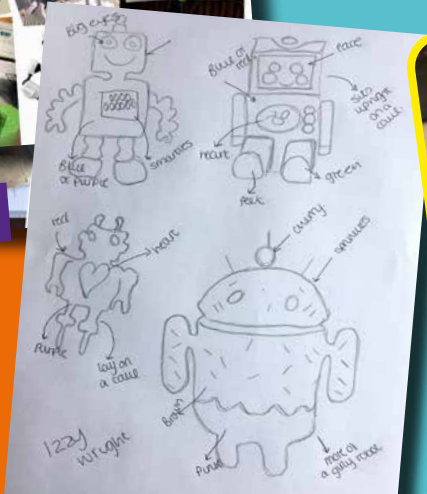 Big eyes
Blue or purple
smarties
Blue or red
face
sits upright on a cake
heart
feet
green
red
heart
Purple
lay on a cake
cherry
sprinkles
Brown
more of a girly robot
Izzy
wright